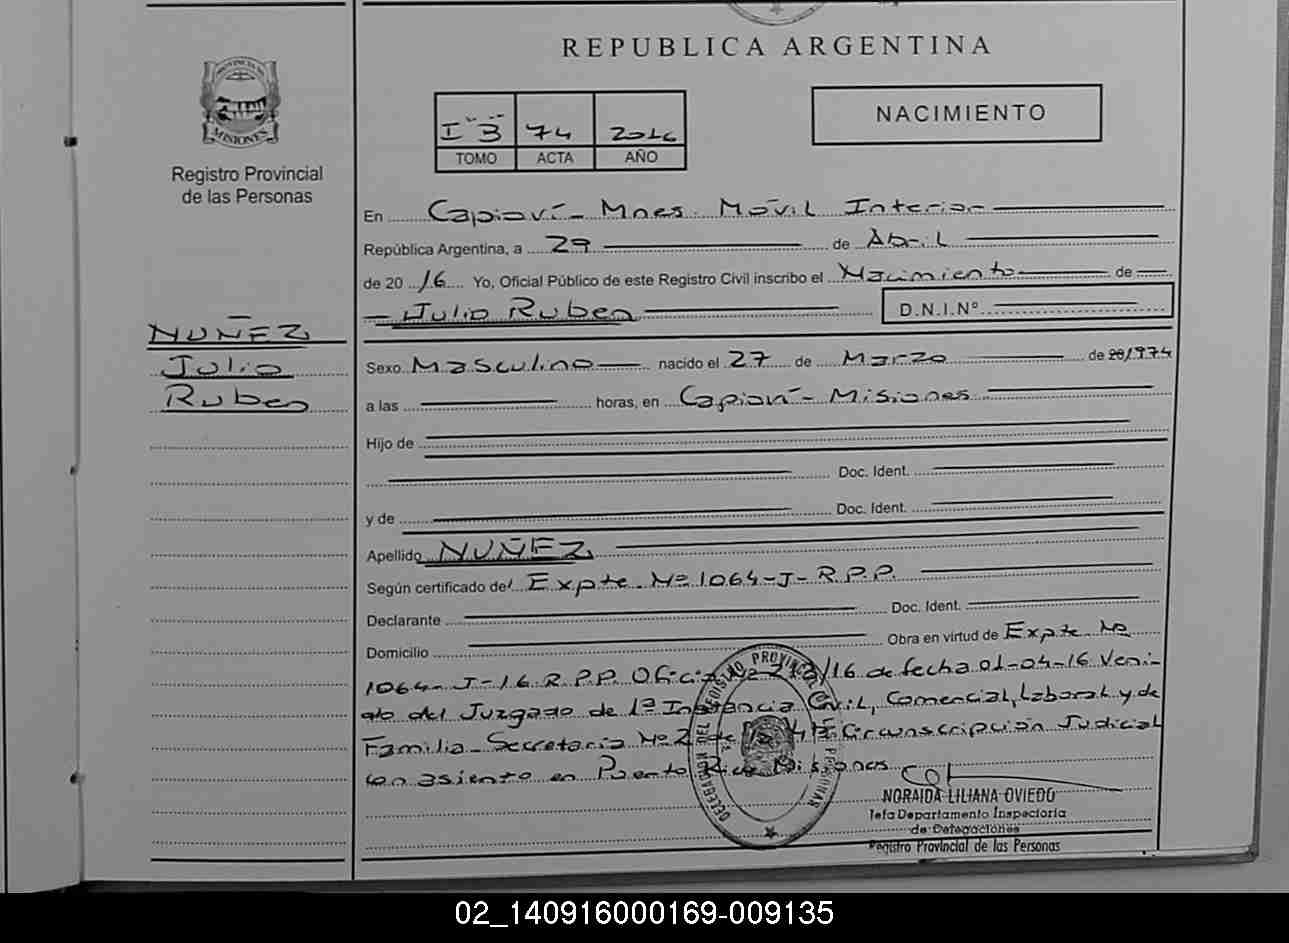 REPUBLICA ARGENTINA
PROVINCIA DE
MISIONES
Registro Provincial
de las Personas
NACIMIENTO
I "B" 74 2016
TOMO ACTA AÑO
En Capioví - Mnes. Móvil Interior
República Argentina, a 29 de Abril
de 20 16 Yo, Oficial Público de este Registro Civil inscribo el Nacimiento de
Julio Ruben D.N.I.Nº
NUÑEZ
Julio
Ruben
Sexo Masculino nacido el 27 de Marzo de 20/974
a las horas, en Capioví - Misiones
Hijo de
Doc. Ident.
y de Doc. Ident.
Apellido NUÑEZ
Según certificado del Expte. Nº 1064-J-R.P.P.
Declarante Doc. Ident.
Domicilio Obra en virtud de Expte Nº
1064-J-16 R.P.P. Oficio Nº /16 de fecha 01-04-16 Veni-
do del Juzgado de 1ª Instancia Civil, Comercial, Laboral y de
Familia Secretaría Nº 2 de la 4ta Circunscripción Judicial
con asiento en Puerto Rico Misiones
DELEGACION DEL REGISTRO PROVINCIAL
NORAIDA LILIANA OVIEDO
Jefa Departamento Inspectoria
de Delegaciones
Registro Provincial de las Personas
02_140916000169-009135